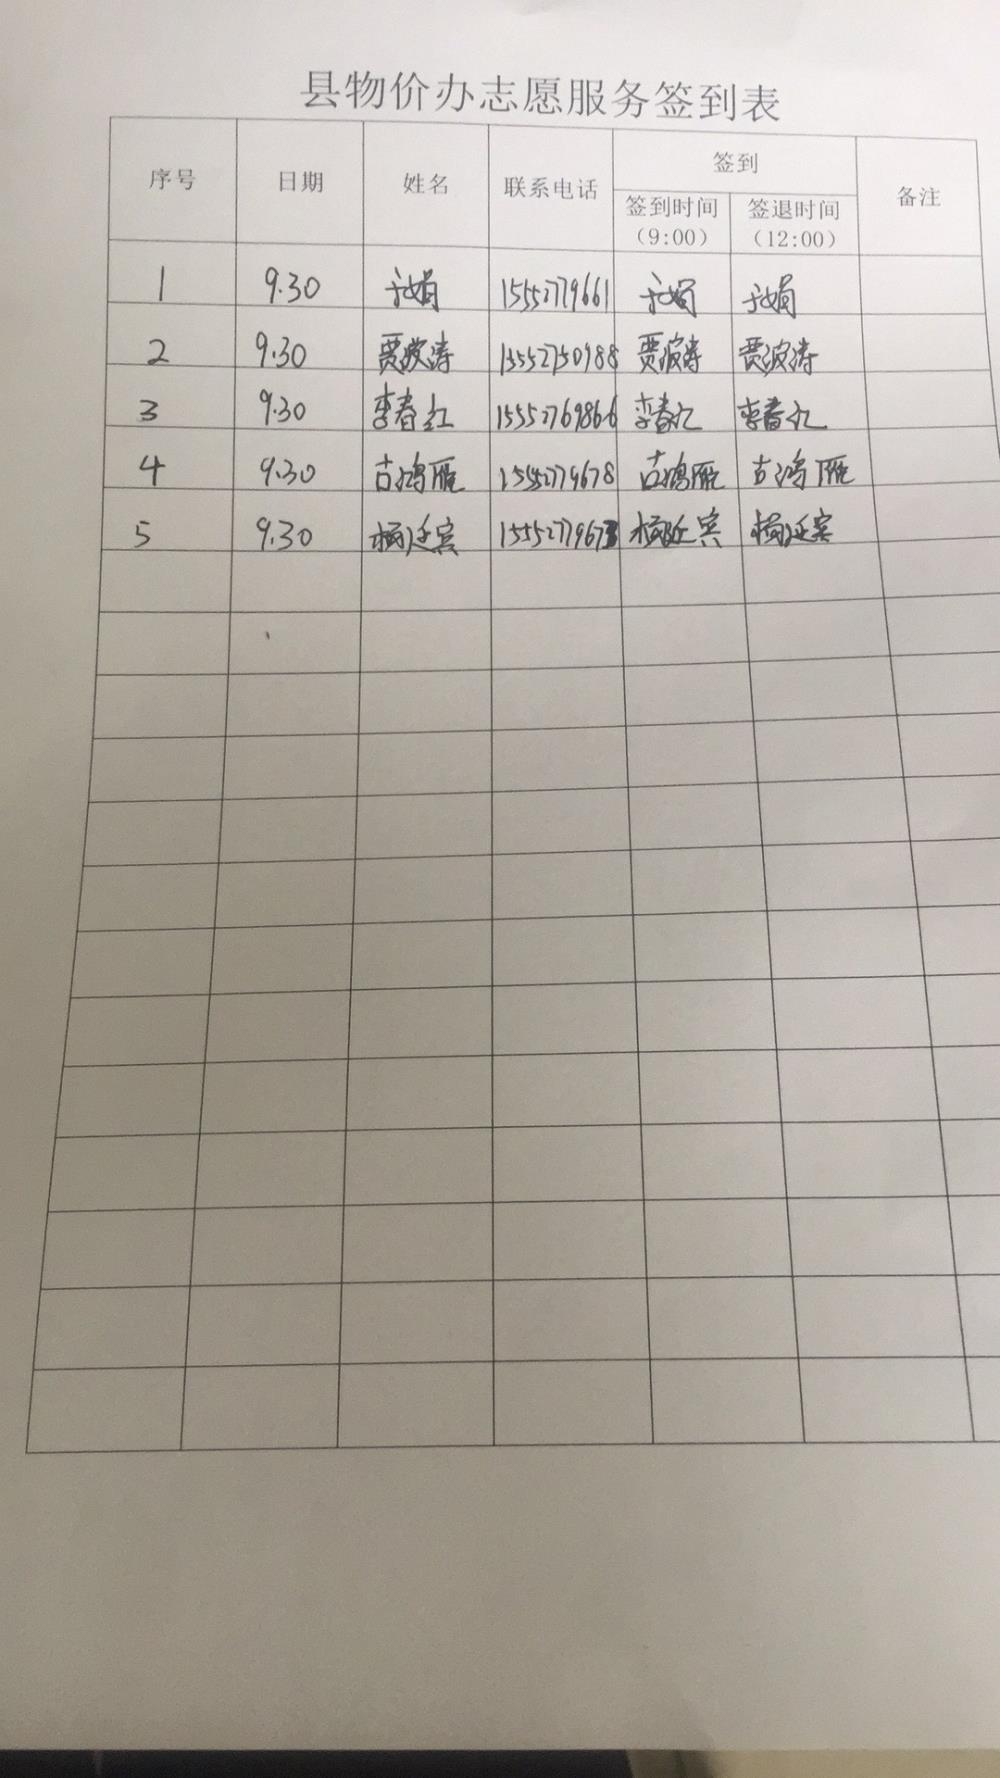 县物价办志愿服务签到表
序号 日期 姓名 联系电话 签到 备注
签到时间 签退时间
（9:00） （12:00）
1 9.30 于娟 15552779661 于娟 于娟
2 9.30 贾波涛 13552750988 贾波涛 贾波涛
3 9.30 李春红 15552769866 李春红 李春红
4 9.30 古鸿雁 15552779678 古鸿雁 古鸿雁
5 9.30 杨延宾 杨延宾 杨延宾